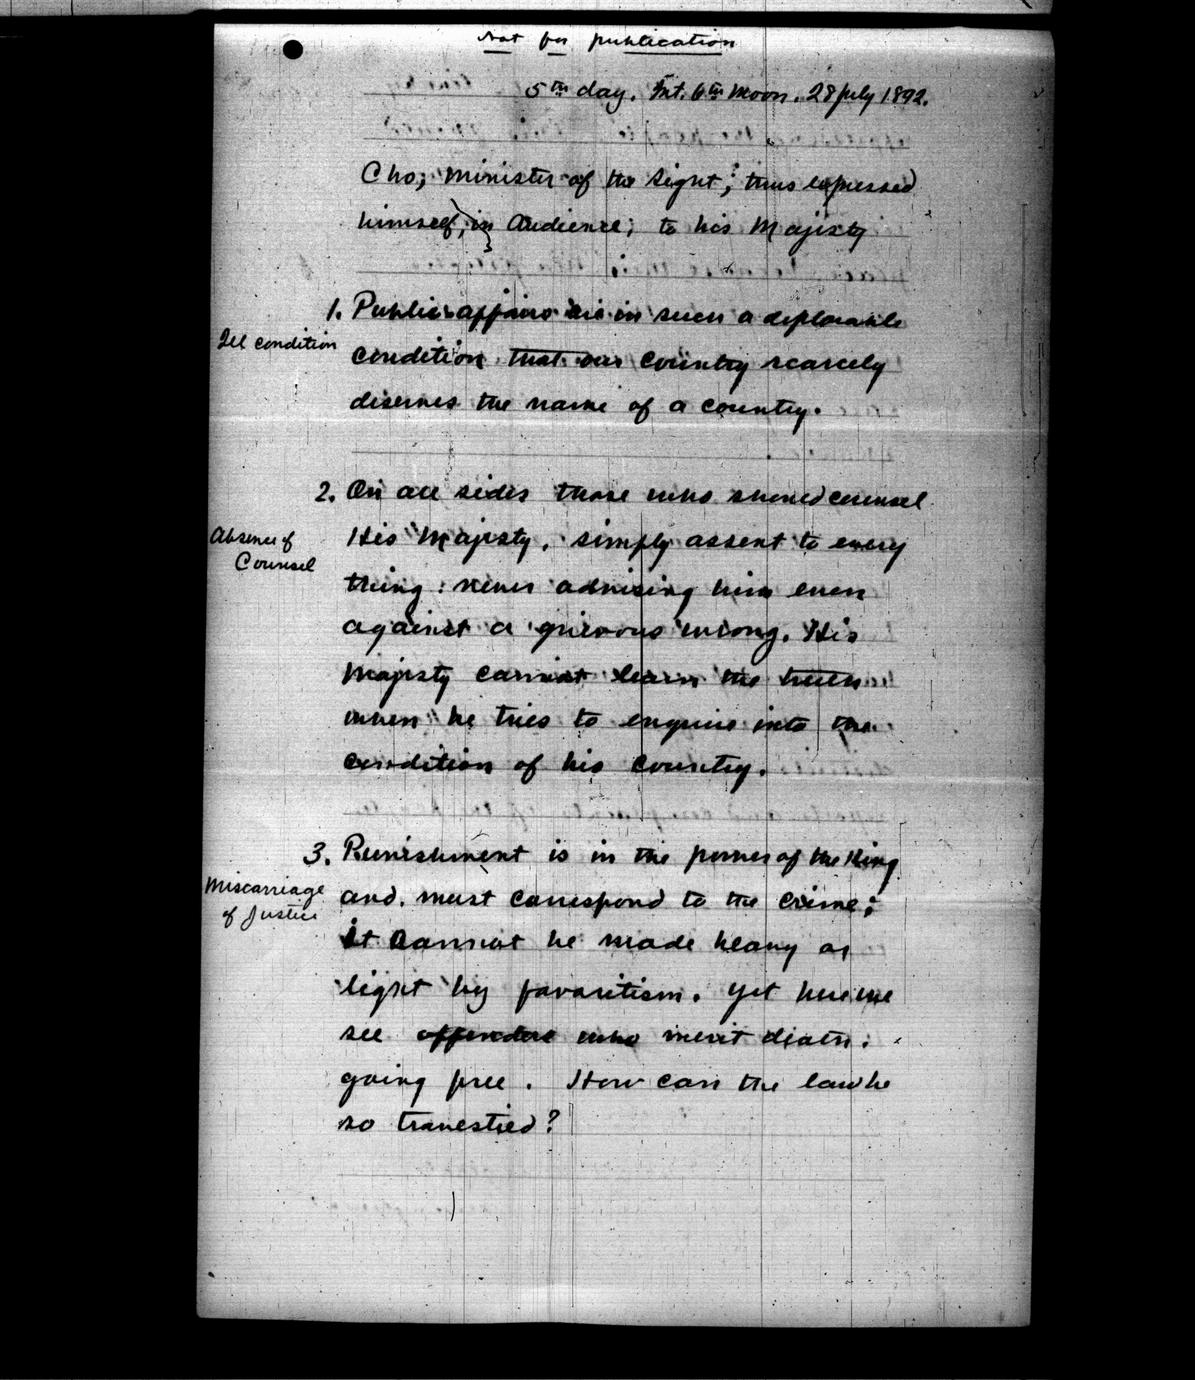 Not for publication
5th day. Int. 6th Moon. 28 July 1892.
Cho; Minister of the Right; thus expressed
himself, in Audience; to his Majesty
1. Public affairs are in such a deplorable
Ill condition
condition that our country scarcely
deserves the name of a country.
2. On all sides those who should counsel
Absence of
Counsel
His Majesty, simply assent to every
thing: never advising him even
against a grievous wrong. His
Majesty cannot learn the truth
when he tries to enquire into the
condition of his country.
3. Punishment is in the power of the King
Miscarriage
of Justice
and must correspond to the crime;
it cannot be made heavy or
light by favoritism. Yet here we
see offenders who merit death
going free. How can the law be
so travestied?